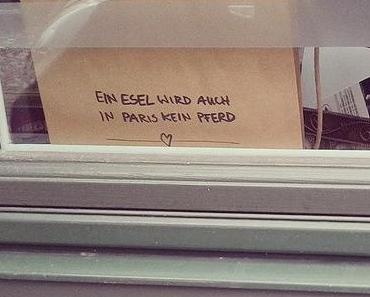 EIN ESEL WIRD AUCH
IN PARIS KEIN PFERD